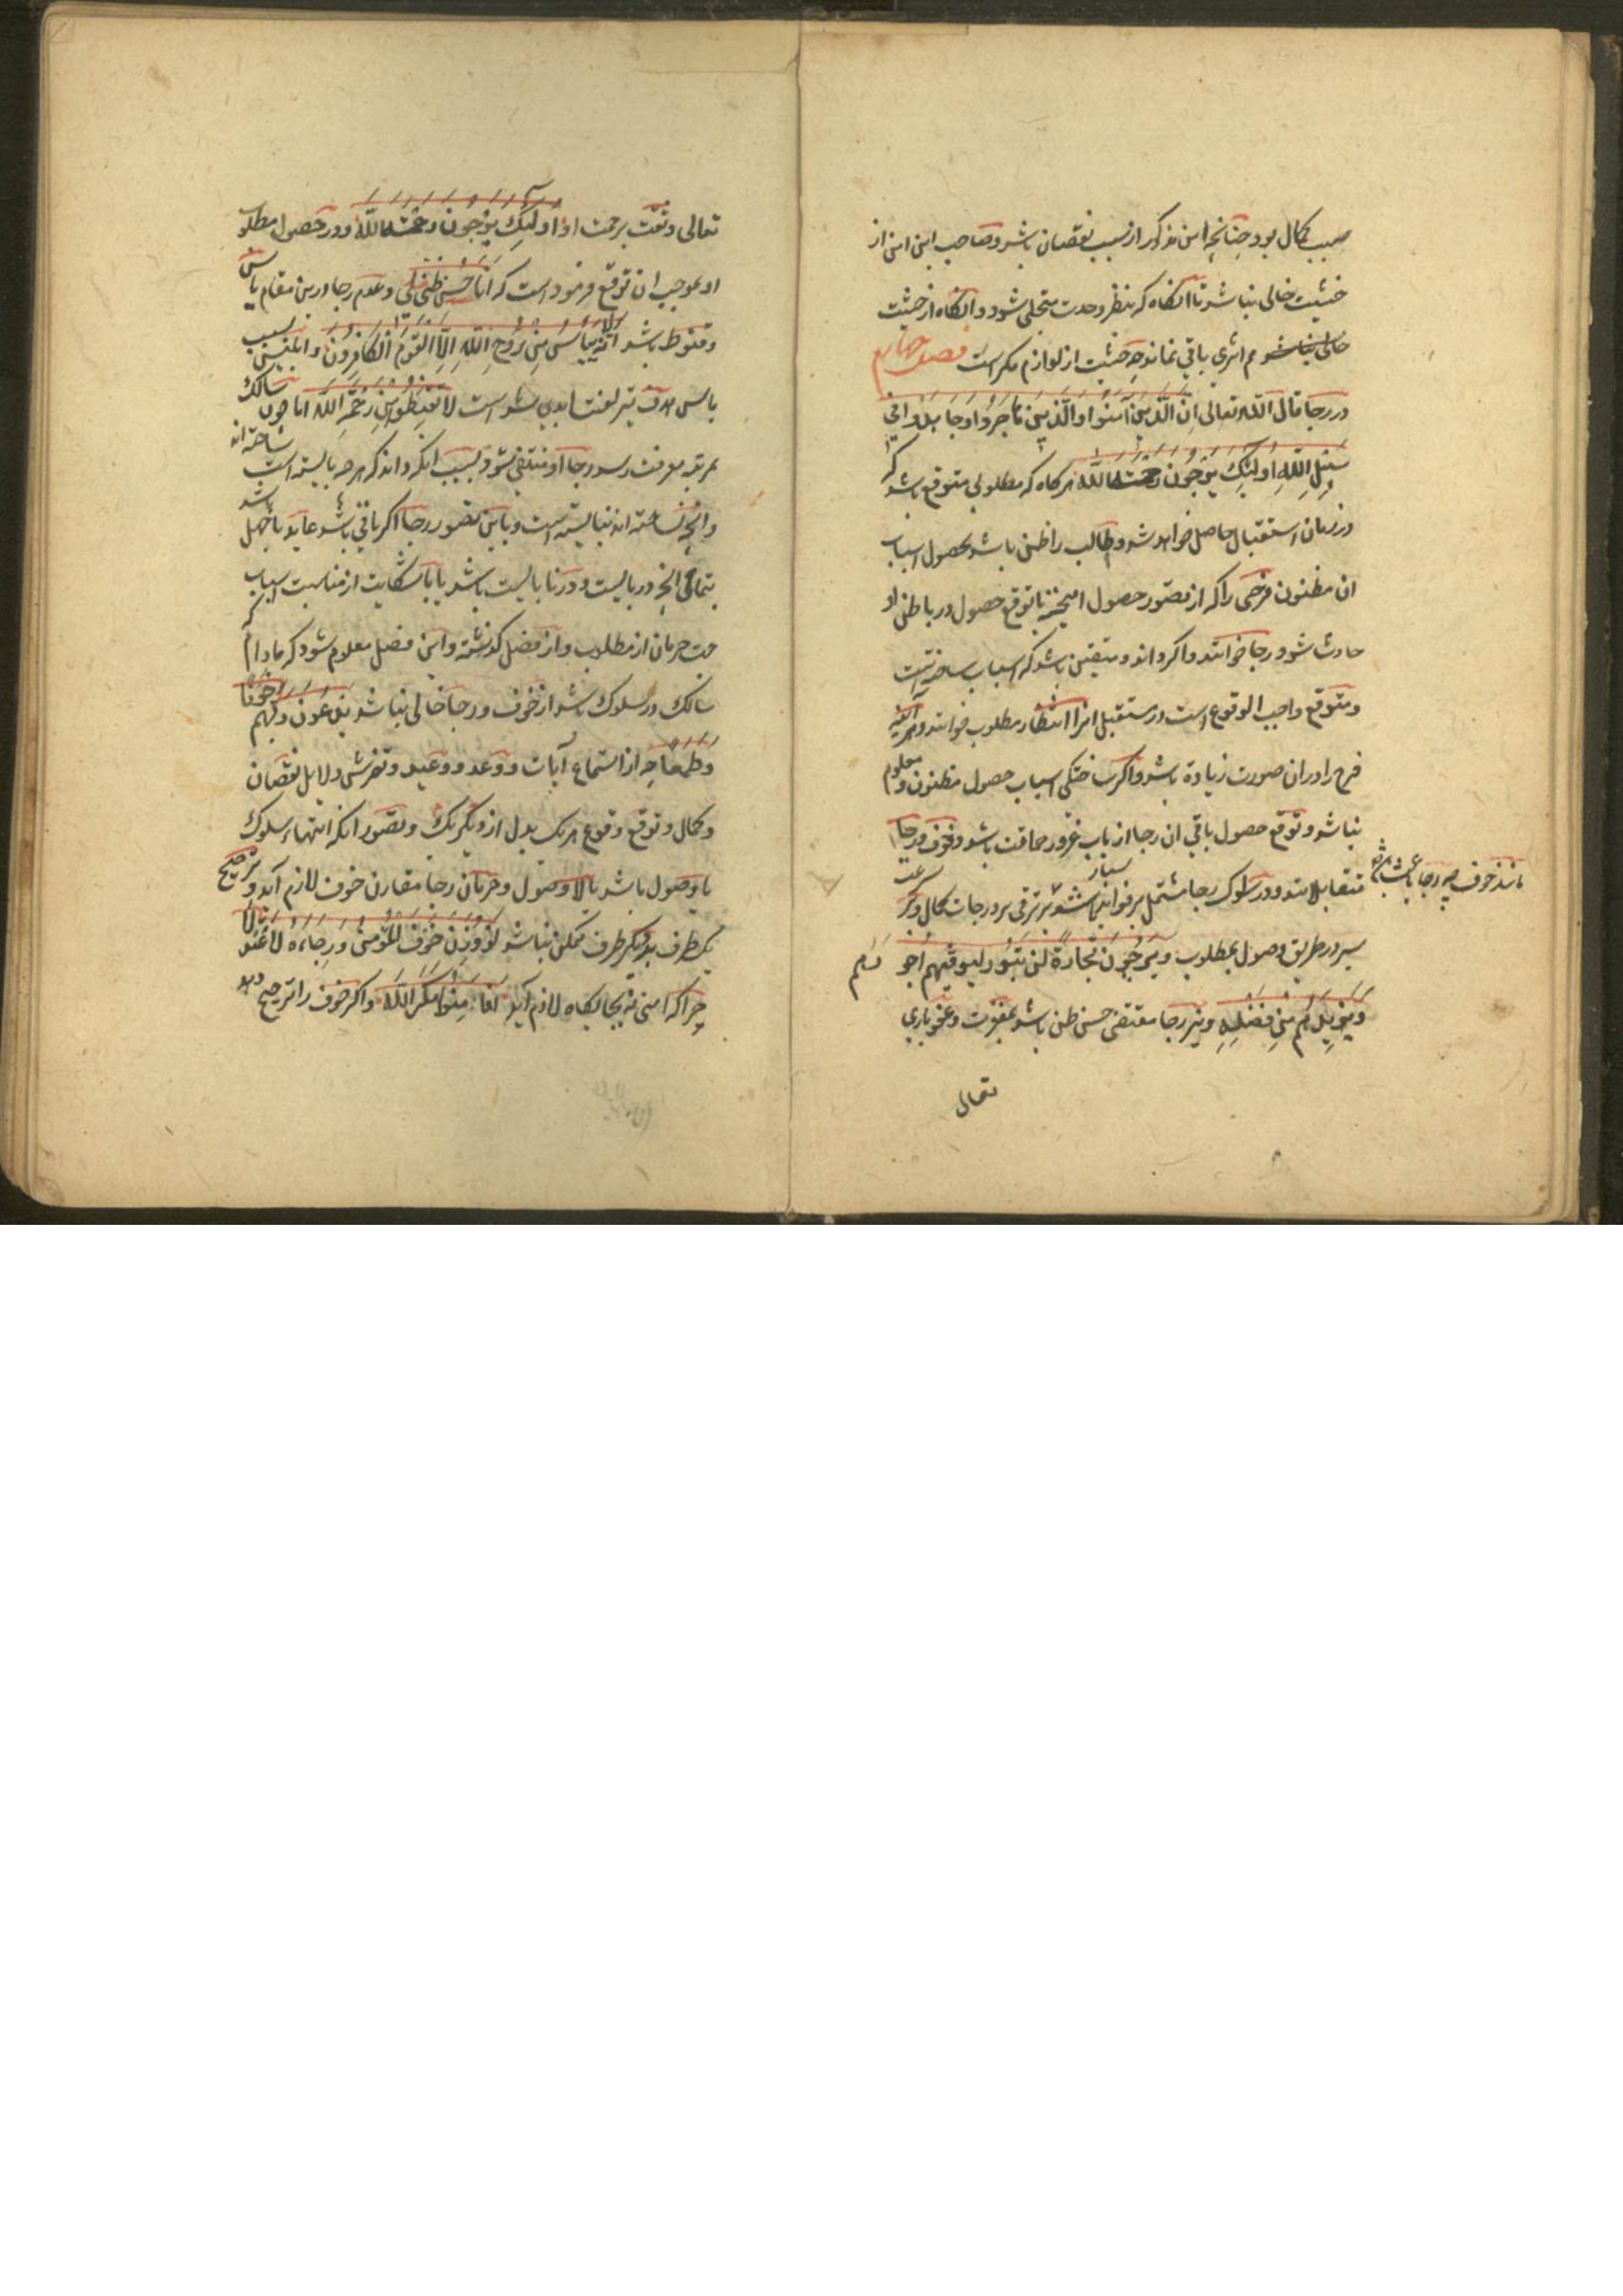 سبب کمال بود چنانچه این مذکور از سبب نقصان باشد و صاحب این امن از
خشیت خالی نباشد تا آنکاه که بنظر وحدت متجلی شود و آنکاه از خشیت
هم اثری باقی نماند چه خشیت از لوازم مکر است فصل چهارم
در رجا قال الله تعالی ان الذین آمنوا و الذین هاجروا و جاهدوا فی
سبیل الله اولئک یرجون رحمت الله هرکاه که مطلوبی متوقع باشد که
در زمان استقبال حاصل خواهد شد و طالب را ظن باشد بحصول اسباب
ان مظنون فرحی را که از تصور حصول امیخته با توقع حصول در باطن او
حادث شود رجا خوانند و اکر داند و متیقن باشد که اسباب ساخته است
و متوقع واجب الوقوع است در مستقبل انرا انتظار مطلوب خوانند و هر آینه
فرح را در ان صورت زیادة باشد و اکر ساختکی اسباب حصول مظنون و معلوم
نباشد و توقع حصول باقی ان رجا از باب غرور حماقت باشد و خوف و رجا
متقابلانند و در سلوک رجا مشتمل بر فواید بسیار باشد بر ترقی بر درجات کمال و سرعت
مانند خوف چه رجا باعث باشد
سیر در طریق وصول بمطلوب و یرجون تجارة لن تبور لیوفیهم اجورهم
و یزیدهم من فضله و نیز رجا مقتضی حسن ظن باشد بمغفرت و عفو باری
تعالی
تعالی و ثقت برحمت او اولئک یرجون رحمت الله و در حصول مطلوب
او بموجب ان توقع فرموده است که انا حسن ظنی لی و عدم رجا در این مقام یاس
و قنوط باشد انه لا ییأس من روح الله الا القوم الکافرون و ابلیس بسبب
یاس هدف تیر لعنت ابدی شده است لا تقنطوا من رحمة الله اما چون سالک
بمرتبه معرفت رسد رجا او منتفی شود بسبب انکه داند که هرچه بایسته است ساخته اند
و انچه نساخته اند نبایسته است و با این تصور رجا اکر باقی باشد عاید با جهل باشد
بتمامی انچه در بایست و در نا بایست باشد یا با شکایت از مناسبت اسباب که
جهت حرمان از مطلوب و از فصل کذشته و این فصل معلوم شود که مادام
سالک در سلوک باشد از خوف و رجا خالی نباشد یدعون ربهم خوفا
و طمعا چه از استماع آیات وعد و وعید و دلایل نقصان
و کمال و توقع وقوع هریک بدل از دیکر یک و تصور انکه انتهاء سلوک
با وصول باشد یا لا وصول و حرمان رجا مقارن خوف لازم آید و ترجیح
یک طرف بدیکر طرف ممکن نباشد لو وزن خوف المؤمن و رجاءه لاعتدلا
چرا که امنی نه بجایکاه لازم آید افامنوا مکر الله و اکر خوف را ترجیح دهد